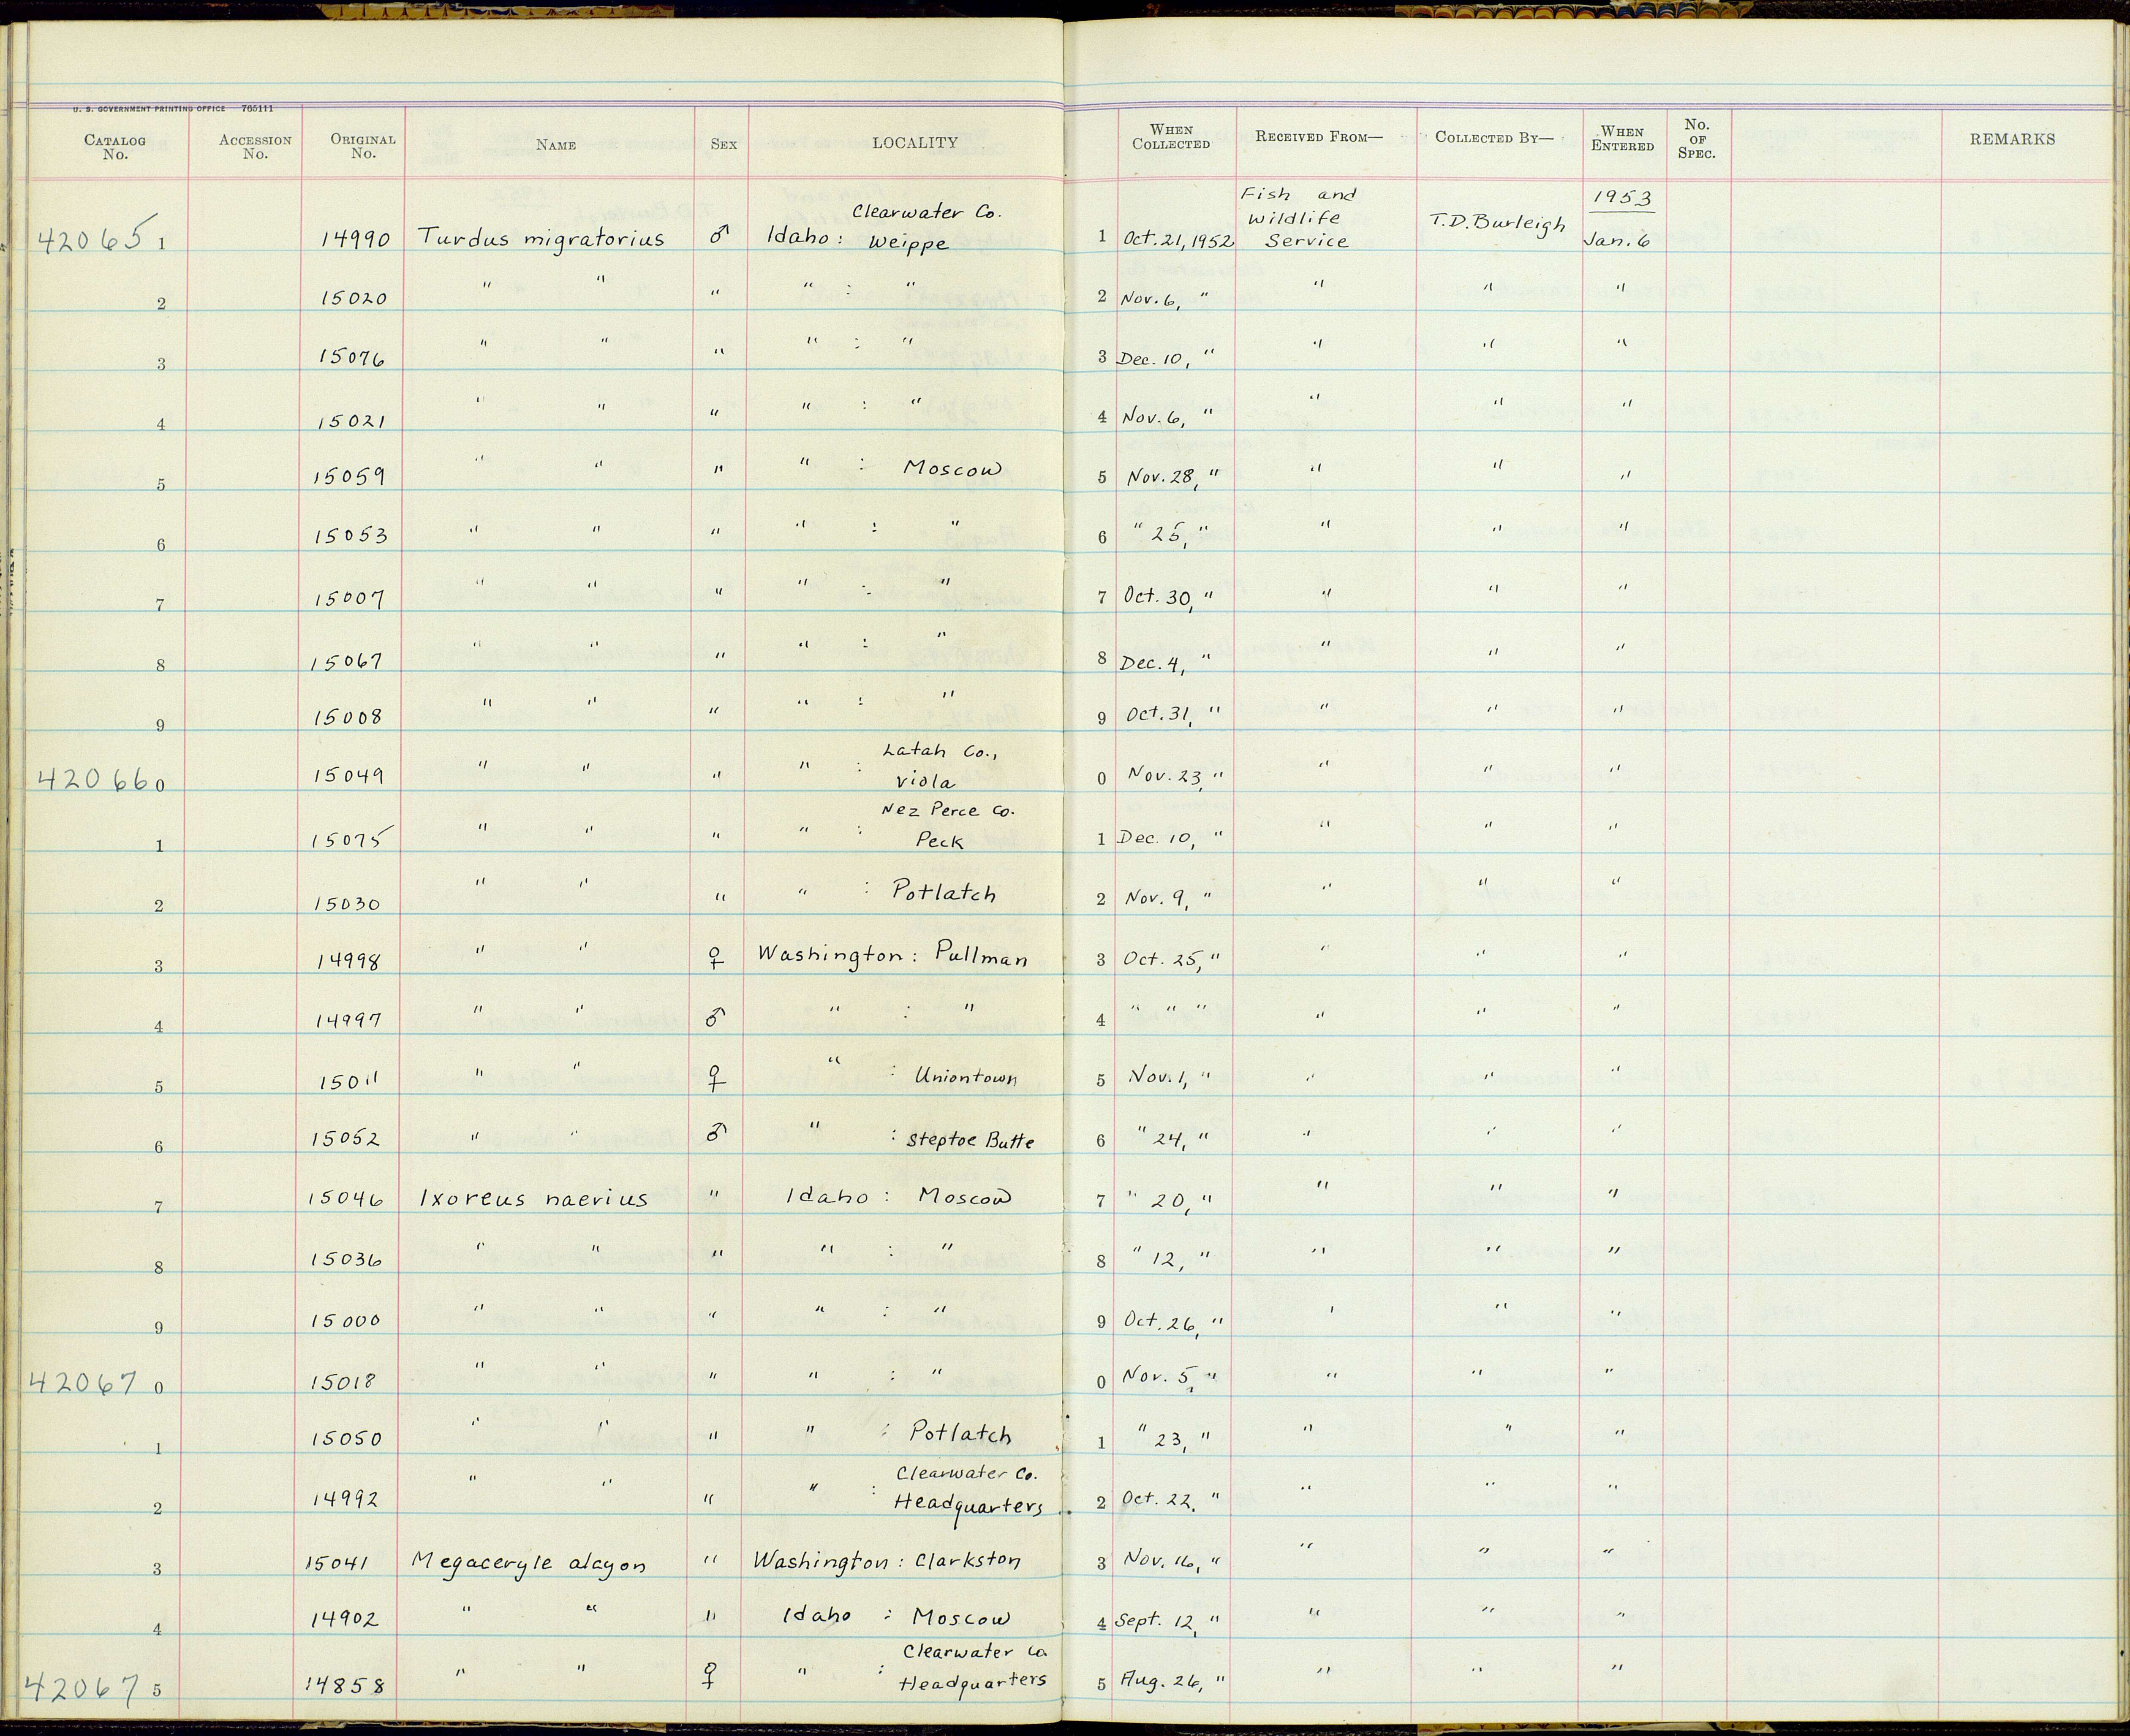 U. S. GOVERNMENT PRINTING OFFICE 765111
CATALOG No. ACCESSION No. ORIGINAL No. NAME SEX LOCALITY WHEN COLLECTED RECEIVED FROM— COLLECTED BY— WHEN ENTERED No. OF SPEC. REMARKS
420651 14990 Turdus migratorius ♂ Idaho: Clearwater Co. Weippe 1 Oct. 21, 1952 Fish and Wildlife Service T.D. Burleigh 1953 Jan. 6
2 15020 " " " " : " 2 Nov. 6, " " " "
3 15076 " " " " : " 3 Dec. 10, " " " "
4 15021 " " " " : " 4 Nov. 6, " " " "
5 15059 " " " " : Moscow 5 Nov. 28, " " " "
6 15053 " " " " : " 6 " 25, " " " "
7 15007 " " " " : " 7 Oct. 30, " " " "
8 15067 " " " " : " 8 Dec. 4, " " " "
9 15008 " " " " : " 9 Oct. 31, " " " "
420660 15049 " " " " : Latah Co., Viola 0 Nov. 23, " " " "
1 15075 " " " " : Nez Perce Co. Peck 1 Dec. 10, " " " "
2 15030 " " " " : Potlatch 2 Nov. 9, " " " "
3 14998 " " ♀ Washington: Pullman 3 Oct. 25, " " " "
4 14997 " " ♂ " : " 4 " " " " " "
5 15011 " " ♀ " : Uniontown 5 Nov. 1, " " " "
6 15052 " " ♂ " : Steptoe Butte 6 " 24, " " " "
7 15046 Ixoreus naevius " Idaho : Moscow 7 " 20, " " " "
8 15036 " " " " : " 8 " 12, " " " "
9 15000 " " " " : " 9 Oct. 26, " " " "
420670 15018 " " " " : " 0 Nov. 5, " " " "
1 15050 " " " " : Potlatch 1 " 23, " " " "
2 14992 " " " " : Clearwater Co. Headquarters 2 Oct. 22, " " " "
3 15041 Megaceryle alcyon " Washington : Clarkston 3 Nov. 16, " " " "
4 14902 " " " Idaho : Moscow 4 Sept. 12, " " " "
420675 14858 " " ♀ " : Clearwater Co Headquarters 5 Aug. 26, " " " "